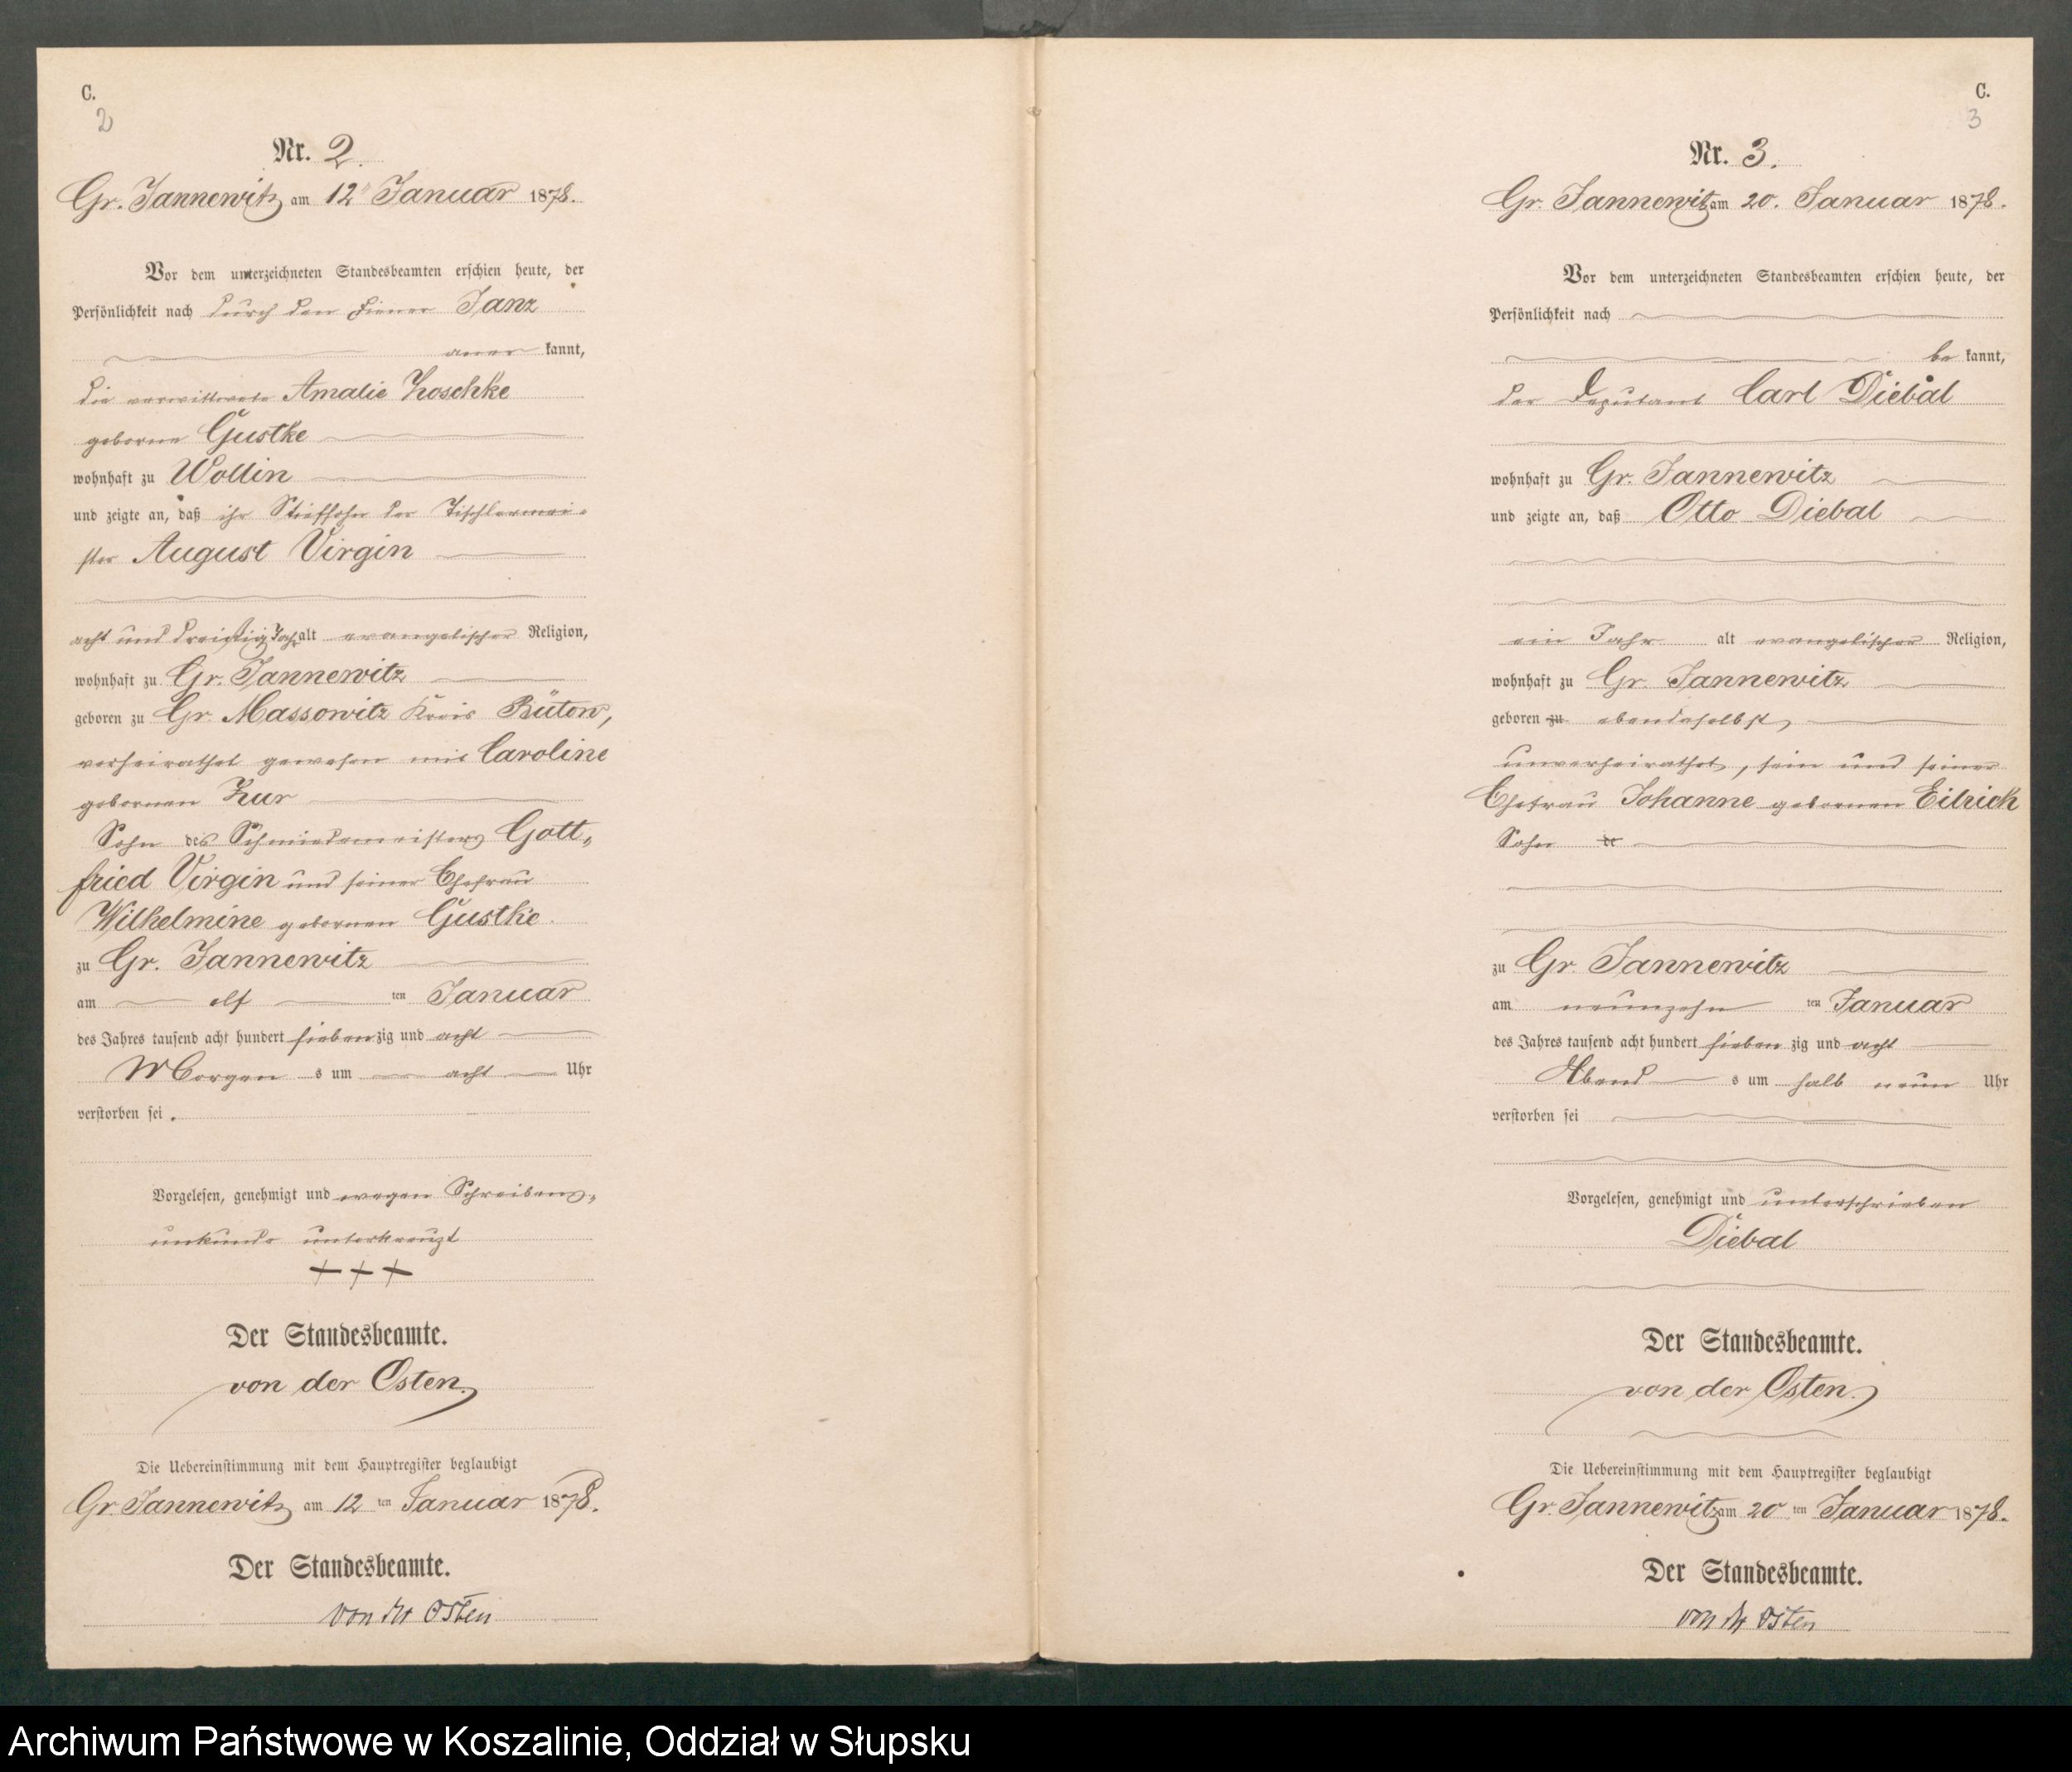 C.
2
Nr. 2.
Gr. Jannewitz am 12ten Januar 1878.
Vor dem unterzeichneten Standesbeamten erschien heute, der
Persönlichkeit nach durch den Diener Janz
aner kannt,
die verwittwete Amalie Zoschke
geborne Gustke
wohnhaft zu Wollin
und zeigte an, daß ihr Stiefsohn der Tischlermei-
ster August Virgin
acht und dreißig Jahr alt evangelischer Religion,
wohnhaft zu Gr. Jannewitz
geboren zu Gr. Massowitz Kreis Bütow,
verheirathet gewesen mit Caroline
gebornen Zur
Sohn des Schmiedemeisters Gott-
fried Virgin und seiner Ehefrau
Wilhelmine gebornen Gustke.
zu Gr. Jannewitz
am elf ten Januar
des Jahres tausend acht hundert siebenzig und acht
Morgen s um acht Uhr
verstorben sei.
Vorgelesen, genehmigt und wegen Schreibens-
unkunde unterkreuzt
+++
Der Standesbeamte.
von der Osten.
Die Uebereinstimmung mit dem Hauptregister beglaubigt
Gr. Jannewitz am 12 ten Januar 1878.
Der Standesbeamte.
von der Osten
C.
3
Nr. 3.
Gr. Jannewitz am 20. Januar 1878.
Vor dem unterzeichneten Standesbeamten erschien heute, der
Persönlichkeit nach
be kannt,
der Deputant Carl Diebal
wohnhaft zu Gr. Jannewitz
und zeigte an, daß Otto Diebal
ein Jahr alt evangelischer Religion,
wohnhaft zu Gr. Jannewitz
geboren zu ebendaselbst,
unverheirathet, sein und seiner
Ehefrau Johanne gebornen Eilrich
Sohn de
zu Gr. Jannewitz
am neunzehn ten Januar
des Jahres tausend acht hundert sieben zig und acht
Abend s um halb neun Uhr
verstorben sei
Vorgelesen, genehmigt und unterschrieben
Diebal
Der Standesbeamte.
von der Osten.
Die Uebereinstimmung mit dem Hauptregister beglaubigt
Gr. Jannewitz am 20 ten Januar 1878.
Der Standesbeamte.
von der Osten
Archiwum Państwowe w Koszalinie, Oddział w Słupsku